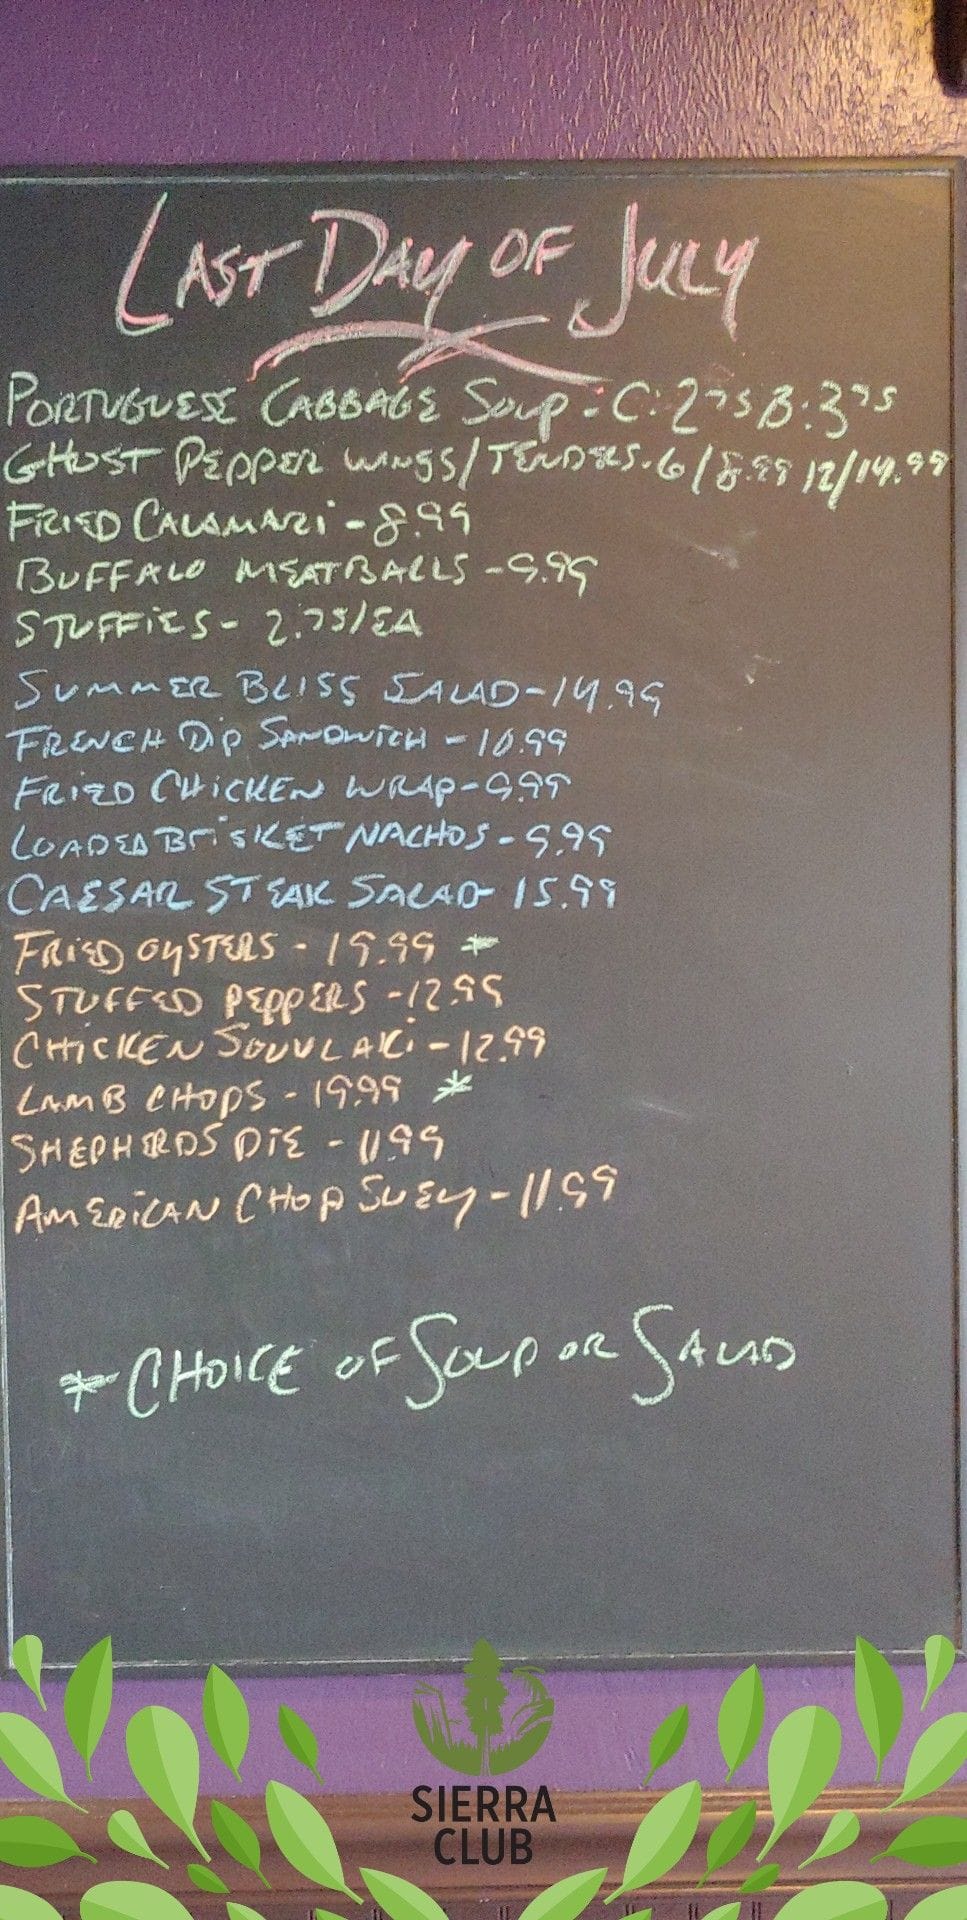 LAST DAY OF JULY
PORTUGUESE CABBAGE SOUP - C: 2.75 B: 3.75
GHOST PEPPER WINGS/TENDERS. 6/8.99 12/14.99
FRIED CALAMARI - 8.99
BUFFALO MEATBALLS - 9.99
STUFFIES - 2.75/EA
SUMMER BLISS SALAD - 14.99
FRENCH DIP SANDWICH - 10.99
FRIED CHICKEN WRAP - 9.99
LOADED BRISKET NACHOS - 9.99
CAESAR STEAK SALAD - 15.99
FRIED OYSTERS - 19.99 *
STUFFED PEPPERS - 12.99
CHICKEN SOUVLAKI - 12.99
LAMB CHOPS - 19.99 *
SHEPHERDS PIE - 11.99
AMERICAN CHOP SUEY - 11.99
* CHOICE OF SOUP OR SALAD
SIERRA
CLUB